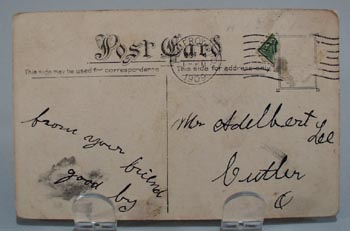 Post Card
This side may be used for correspondence This side for address only
1909
from your friend
good by
Mr Adelbert Lee
Cutler
O